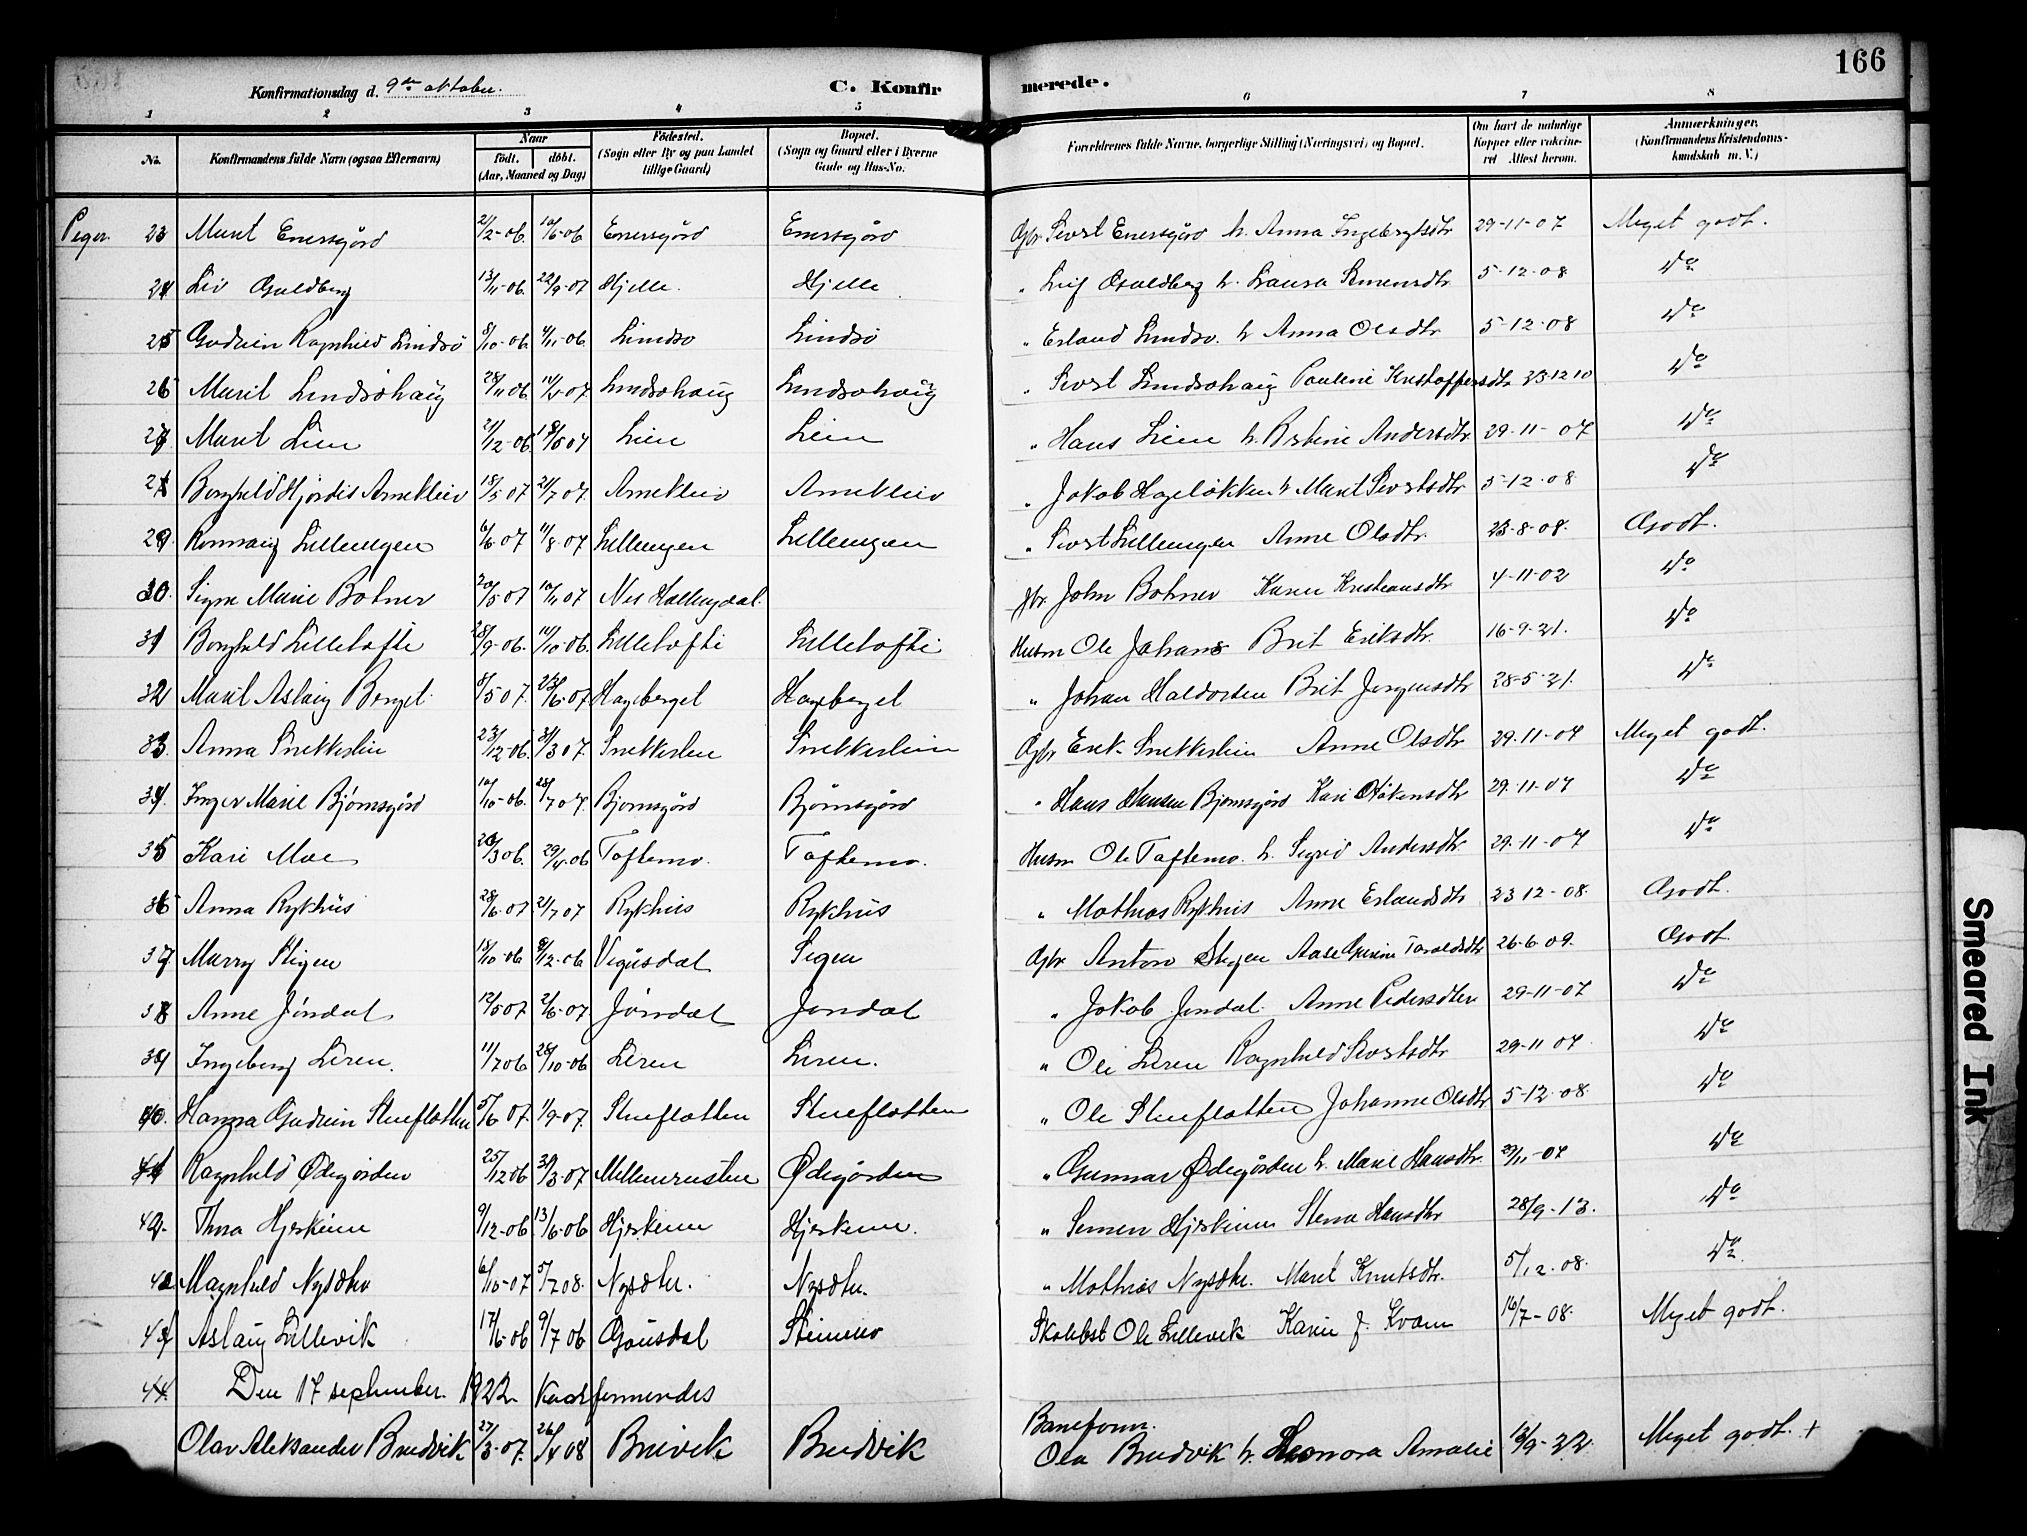 166
Konfirmationsdag d. 9de oktober.
C. Konfirmerede.
1 2 3 4 5 6 7 8
No. Konfirmandens fulde Navn (ogsaa Efternavn) Naar født. døbt. (Aar, Maaned og Dag) Fødested. (Sogn eller By og paa Landet tillige Gaard) Bopæl. (Sogn og Gaard eller i Byerne Gade og Hus-No. Forældrenes fulde Navne, borgerlige Stilling (Næringsvei) og Bopæl. Om havt de naturlige Kopper eller vaccineret. Attest herom. Anmærkninger. (Konfirmandens Kristendomskundskab m. V.)
Piger. 23 Marit Enersgård 2/2-06. 10/6-06 Enersgård Enersgård Gbr. Sivert Enersgård h. Anna Ingebrigtsdtr 29-11-07 Meget godt.
24 Liv Guldberg 13/11-06. 22/9-07 Hjelle. Hjelle " Leif Guldberg h. Laura Simensdtr 5-12-08 Do
25 Gudrun Ragnhild Lindsø 8/10-06. 4/11-06. Lindsø Lindsø " Erland Lindsø. h Anna Olsdtr 5-12-08 Do
26 Marit Lindsøhaug 28/11 06. Lindsøhaug Lindsøhaug " Sivert Lindsøhaug Pauline Kristoffersdtr 23 12 10 Do
27 Marit Lien 21/12-06 Lien Lien " Hans Lien h. Kristine Andersdtr 29-11-07 Do
28 Borghild Hjørdis Arnekleiv 18/5 07 21/7 07. Arnekleiv Arnekleiv " Jakob Hageløkken h Marit Sivertsdtr 5-12-08 Do
29. Rønnaug Lillengen 6/6-07 11/8-07 Lillengen Lillengen " Sivert Lillengen Anne Olsdtr. 23-8-08. Godt.
30. Signe Marie Botner 20/5 07 10/11 07 Nes Hallingdal. Gbr. John Botner Karen Kristiansdtr 4-11-02 Do
31 Borghild Lilletofte 28/9-06. 14/10-06. Lilletofte Lilletofte Husm Ole Johans Brit Eriksdtr. 16-9-21. Do
32 Marit Aslaug Berget 8/5 07. 23/6-07. Hageberget Hageberget " Johan Haldorsen Brit Jørgensdtr 28-5-21. Do
33. Anna Snekkerlien 23/12-06. 31/3 07. Snekkerlien Snekkerlien Gbr Erik Snekkerlien Anne Olsdtr 29-11-07 Meget godt.
34 Inger Marie Bjørnsgård 10/10-06. 28/7 07. Bjørnsgård Bjørnsgård " Hans Hansen Bjørnsgård Kari Håkensdtr 29-11-07 Do
35 Kari Moe 20/3 06. 29/4-06 Toftemo. Toftemo. Husm Ole Toftemo. h. Sigrid Andersdtr. 29-11-07 Do
36 Anna Rykhus 28/6-07 21/7 07 Rykhus Rykhus " Mathias Rykhus Anne Erlandsdtr 23 12-08. Godt.
37 Marry Stigen 18/10-06 9/12-06 Vigusdal Stigen Gbr Anton Stigen 26-6-09. Godt.
38 Anne Jøndal 12/5 07. 2/6-07. Jøndal Jøndal " Jakob Jøndal. Anne Pedersdtr 29-11-07 Do
39 Ingeborg Liren. 11/7 06 28/10-06 Liren Liren. " Ole Liren Ragnhild Sivertsdtr 29-11 07 Do
40. Hanna Gudrun Stueflotten 5/6 07. 1/9-07. Stueflotten Stueflotten " Ole Stueflotten Johanne Olsdtr 5-12-08. Do
41 Ragnhild Ødegården 25/12 06 31/3-07 Ødegården " Gunnar Ødegården h. Marie Hansdtr. 29/11-07 Do
42. Thora Hjerkinn 9/12-06 13/6-06 Hjerkinn Hjerkinn. " Simen Hjerkinn Hansdtr 28/9-13. Do
42 Magnhild Nysæter 6/10-07 5/7 08. Nysæter. Nysæter. " Mathias Nysæter. Marit Knutsdtr. 5/12-08. Do
43 Aslaug Lillevik 17/6-06 9/7 06 Gausdal Skolebst Ole Lillevik Karin J. Kvam 16/7-08. Meget godt.
44. Den 17 september 1922 konfirmerdes
Baneform.
Olav Aleksander Bredvik 27/3-07. 26/4 08 Brevik Bredvik Ola Bredvik h. Leonora Amalie 13/9-22. Meget godt. +
Smeared Ink